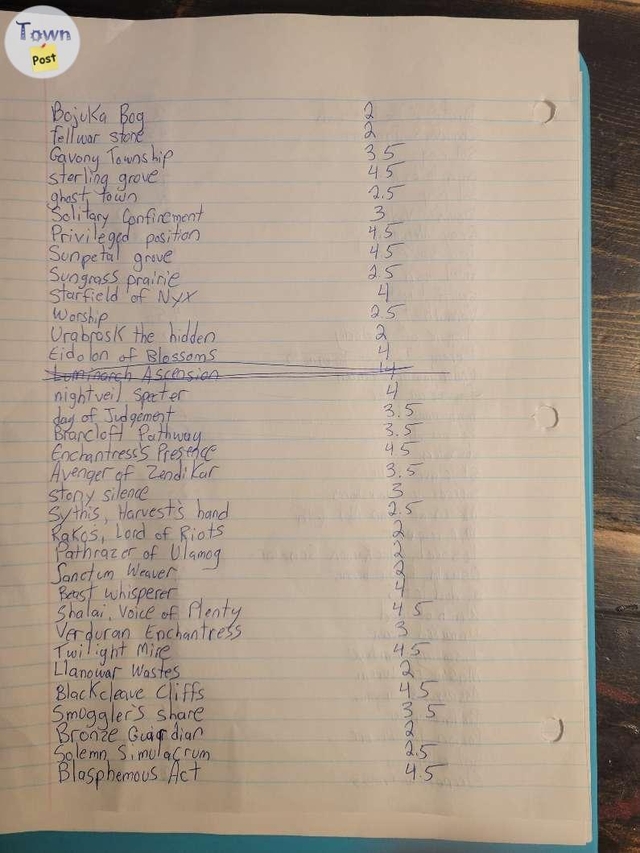 Town
Post
Bojuka Bog 2
fellwar stone 2
Gavony Township 3 5
sterling grove 4 5
ghost town 2.5
Solitary Confinement 3
Privileged position 4.5
Sunpetal grove 4 5
Sungrass prairie 2.5
Starfield of Nyx 4
Worship 2.5
Urabrask the hidden 2
Eidolon of Blossoms 4
Luminarch Ascension 14
nightveil specter 4
day of Judgement 3.5
Brancloft Pathway 3.5
Enchantress's Presence 4 5
Avenger of Zendikar 3.5
stony silence 3
Sythis, Harvest's hand 2.5
Rakos, Lord of Riots 2
Pathrazer of Ulamog 2
Sanctum Weaver 2
Beast whisperer 4
Shalai, Voice of Plenty 4 5
Verduran Enchantress 3
Twilight Mire 4.5
Llanowar Wastes 2
Blackcleave Cliffs 4 5
Smuggler's share 3 5
Bronze Guardian 2
Solemn Simulacrum 2.5
Blasphemous Act 4.5